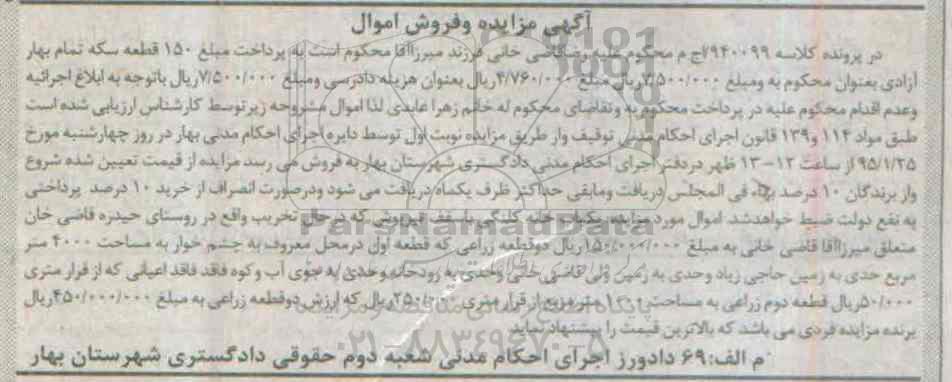 آگهی مزایده وفروش اموال
در پرونده کلاسه ۷۹۴۰۰۹۹ج م محکوم علیه رضاقاضی خانی فرزند میرزاآقا محکوم است به پرداخت مبلغ ۱۵۰ قطعه سکه تمام بهار
آزادی بعنوان محکوم به ومبلغ ۷/۵۰۰/۰۰۰ریال مبلغ ۴/۷۶۰/۰۰۰ریال بعنوان هزینه دادرسی ومبلغ ۷/۵۰۰/۰۰۰ریال باتوجه به ابلاغ اجرائیه
وعدم اقدام محکوم علیه در پرداخت محکوم به وتقاضای محکوم له خانم زهرا عابدی لذا اموال مشروحه زیرتوسط کارشناس ارزیابی شده است
طبق مواد ۱۱۴ و۱۳۹ قانون اجرای احکام مدنی توقیف واز طریق مزایده نوبت اول توسط دایره اجرای احکام مدنی بهار در روز چهارشنبه مورخ
۹۵/۱/۲۵ از ساعت ۱۲-۱۳ ظهر دردفتر اجرای احکام مدنی دادگستری شهرستان بهار به فروش می رسد مزایده از قیمت تعیین شده شروع
واز برندگان ۱۰ درصد بهاء فی المجلس دریافت ومابقی حداکثر ظرف یکماه دریافت می شود ودرصورت انصراف از خرید ۱۰ درصد پرداختی
به نفع دولت ضبط خواهدشد اموال مورد مزایده یکباب خانه کلنگی باسقف تیرپوش که درحال تخریب واقع در روستای حیدره قاضی خان
متعلق میرزاآقا قاضی خانی به مبلغ ۱۵۰/۰۰۰/۰۰۰ریال دوقطعه زراعی که قطعه اول درمحل معروف به چشم خوار به مساحت ۴۰۰۰ متر
مربع حدی به زمین حاجی زیاد وحدی به زمین ولی قاضی خانی وحدی به رودخانه وحدی به جوی آب وکوه فاقد فاقد اعیانی که از قرار متری
۵۰/۰۰۰ریال قطعه دوم زراعی به مساحت ۱۰۰۰ مترمربع ازقرار متری ۲۵۰/۰۰۰ریال که ارزش دوقطعه زراعی به مبلغ ۴۵۰/۰۰۰/۰۰۰ریال
برنده مزایده فردی می باشد که بالاترین قیمت را پیشنهاد نماید
م الف:۶۹ دادورز اجرای احکام مدنی شعبه دوم حقوقی دادگستری شهرستان بهار
ParsNamadData
پایگاه
۰۲۱-۸۸۳۴۹۶۷۰-۵